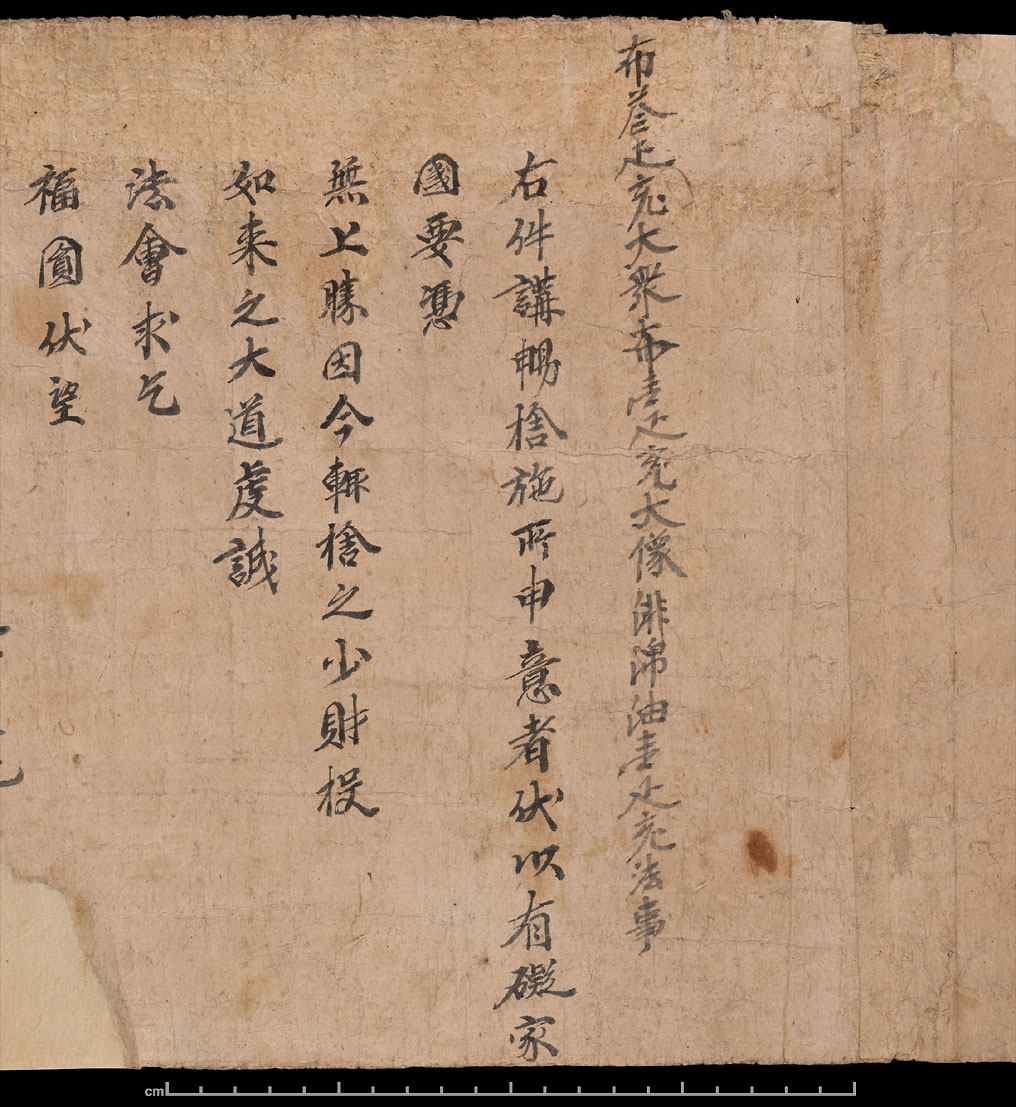 布叁疋充大衆布壹疋充大像緋綿油壹疋充法事
右件講暢捨施所申意者伏以有礙家
國要憑
無上勝因今輙捨之少財投
如来之大道虔誠
法會求乞
福圓伏望
cm